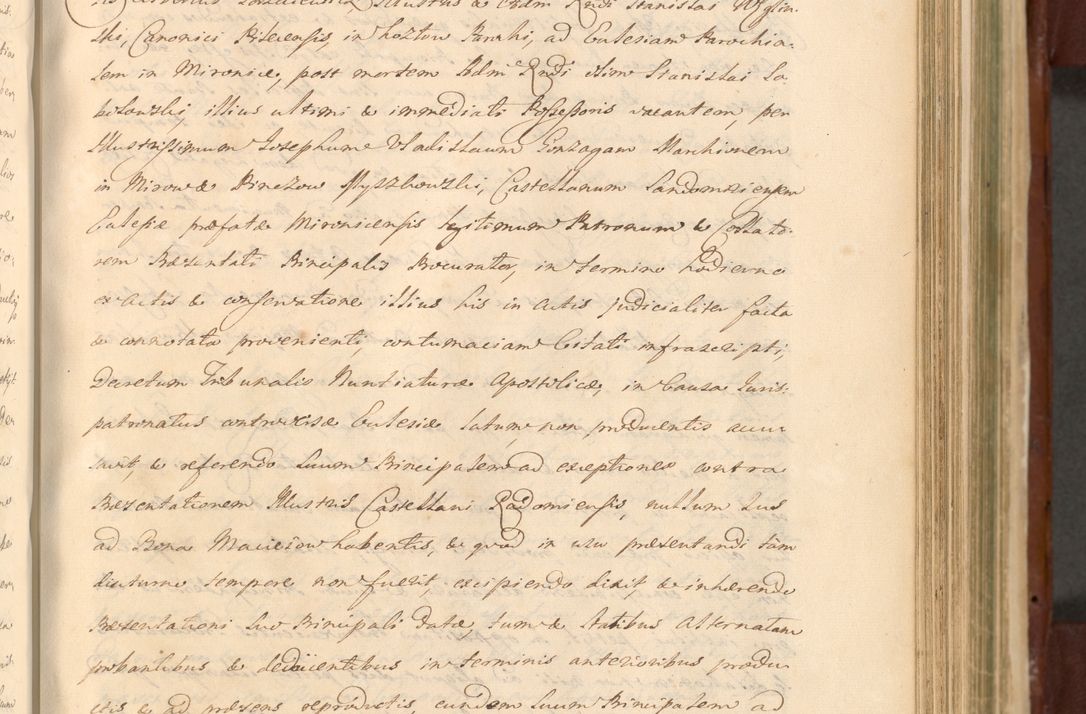 Stanislai Wyslin-
ski, Canonici Pilecensis, in Koztow Parochi, ad Ecclesiam Parochia-
lem in Mironice, post mortem Adm Rndi olim Stanislai So-
bolewski, illius ultimi & immediati Possessoris vacantem, per
Illustrissimum Josephum Vladislaum Gonzagam Marchionem
in Mirow & Pinczow Myszkowski, Castellanum Sandomiriensem
Ecclesiæ præfatæ Mironicensis legitimum Patronum & Collato-
rem Præsentati Principalis Procurator, in termino hodierno
ex actis & conservatione illius his in actis judicialiter facta
& connotata provenienti, contumaciam Citati infrascripti,
Decretum Tribunalis Nuntiaturæ Apostolicæ, in Causa Juris-
patronatus controversæ Ecclesiæ latum, non producentis accu-
savit, & referendo Suum Principalem ad exceptiones contra
Præsentationem Illustris Castellani Radomiensis, nullum Jus
ad Bona Macieiow habentis, & quod in usu præsentandi tam
diuturno tempore non fuerit, excipiendo dixit, & inhærendo
Præsentationi Suo Principali datæ, tum & Statibus Alternatam
probantibus & deducentibus in terminis anterioribus produ-
ctis & ad præsens reproductis, eundem Suum Principalem ad